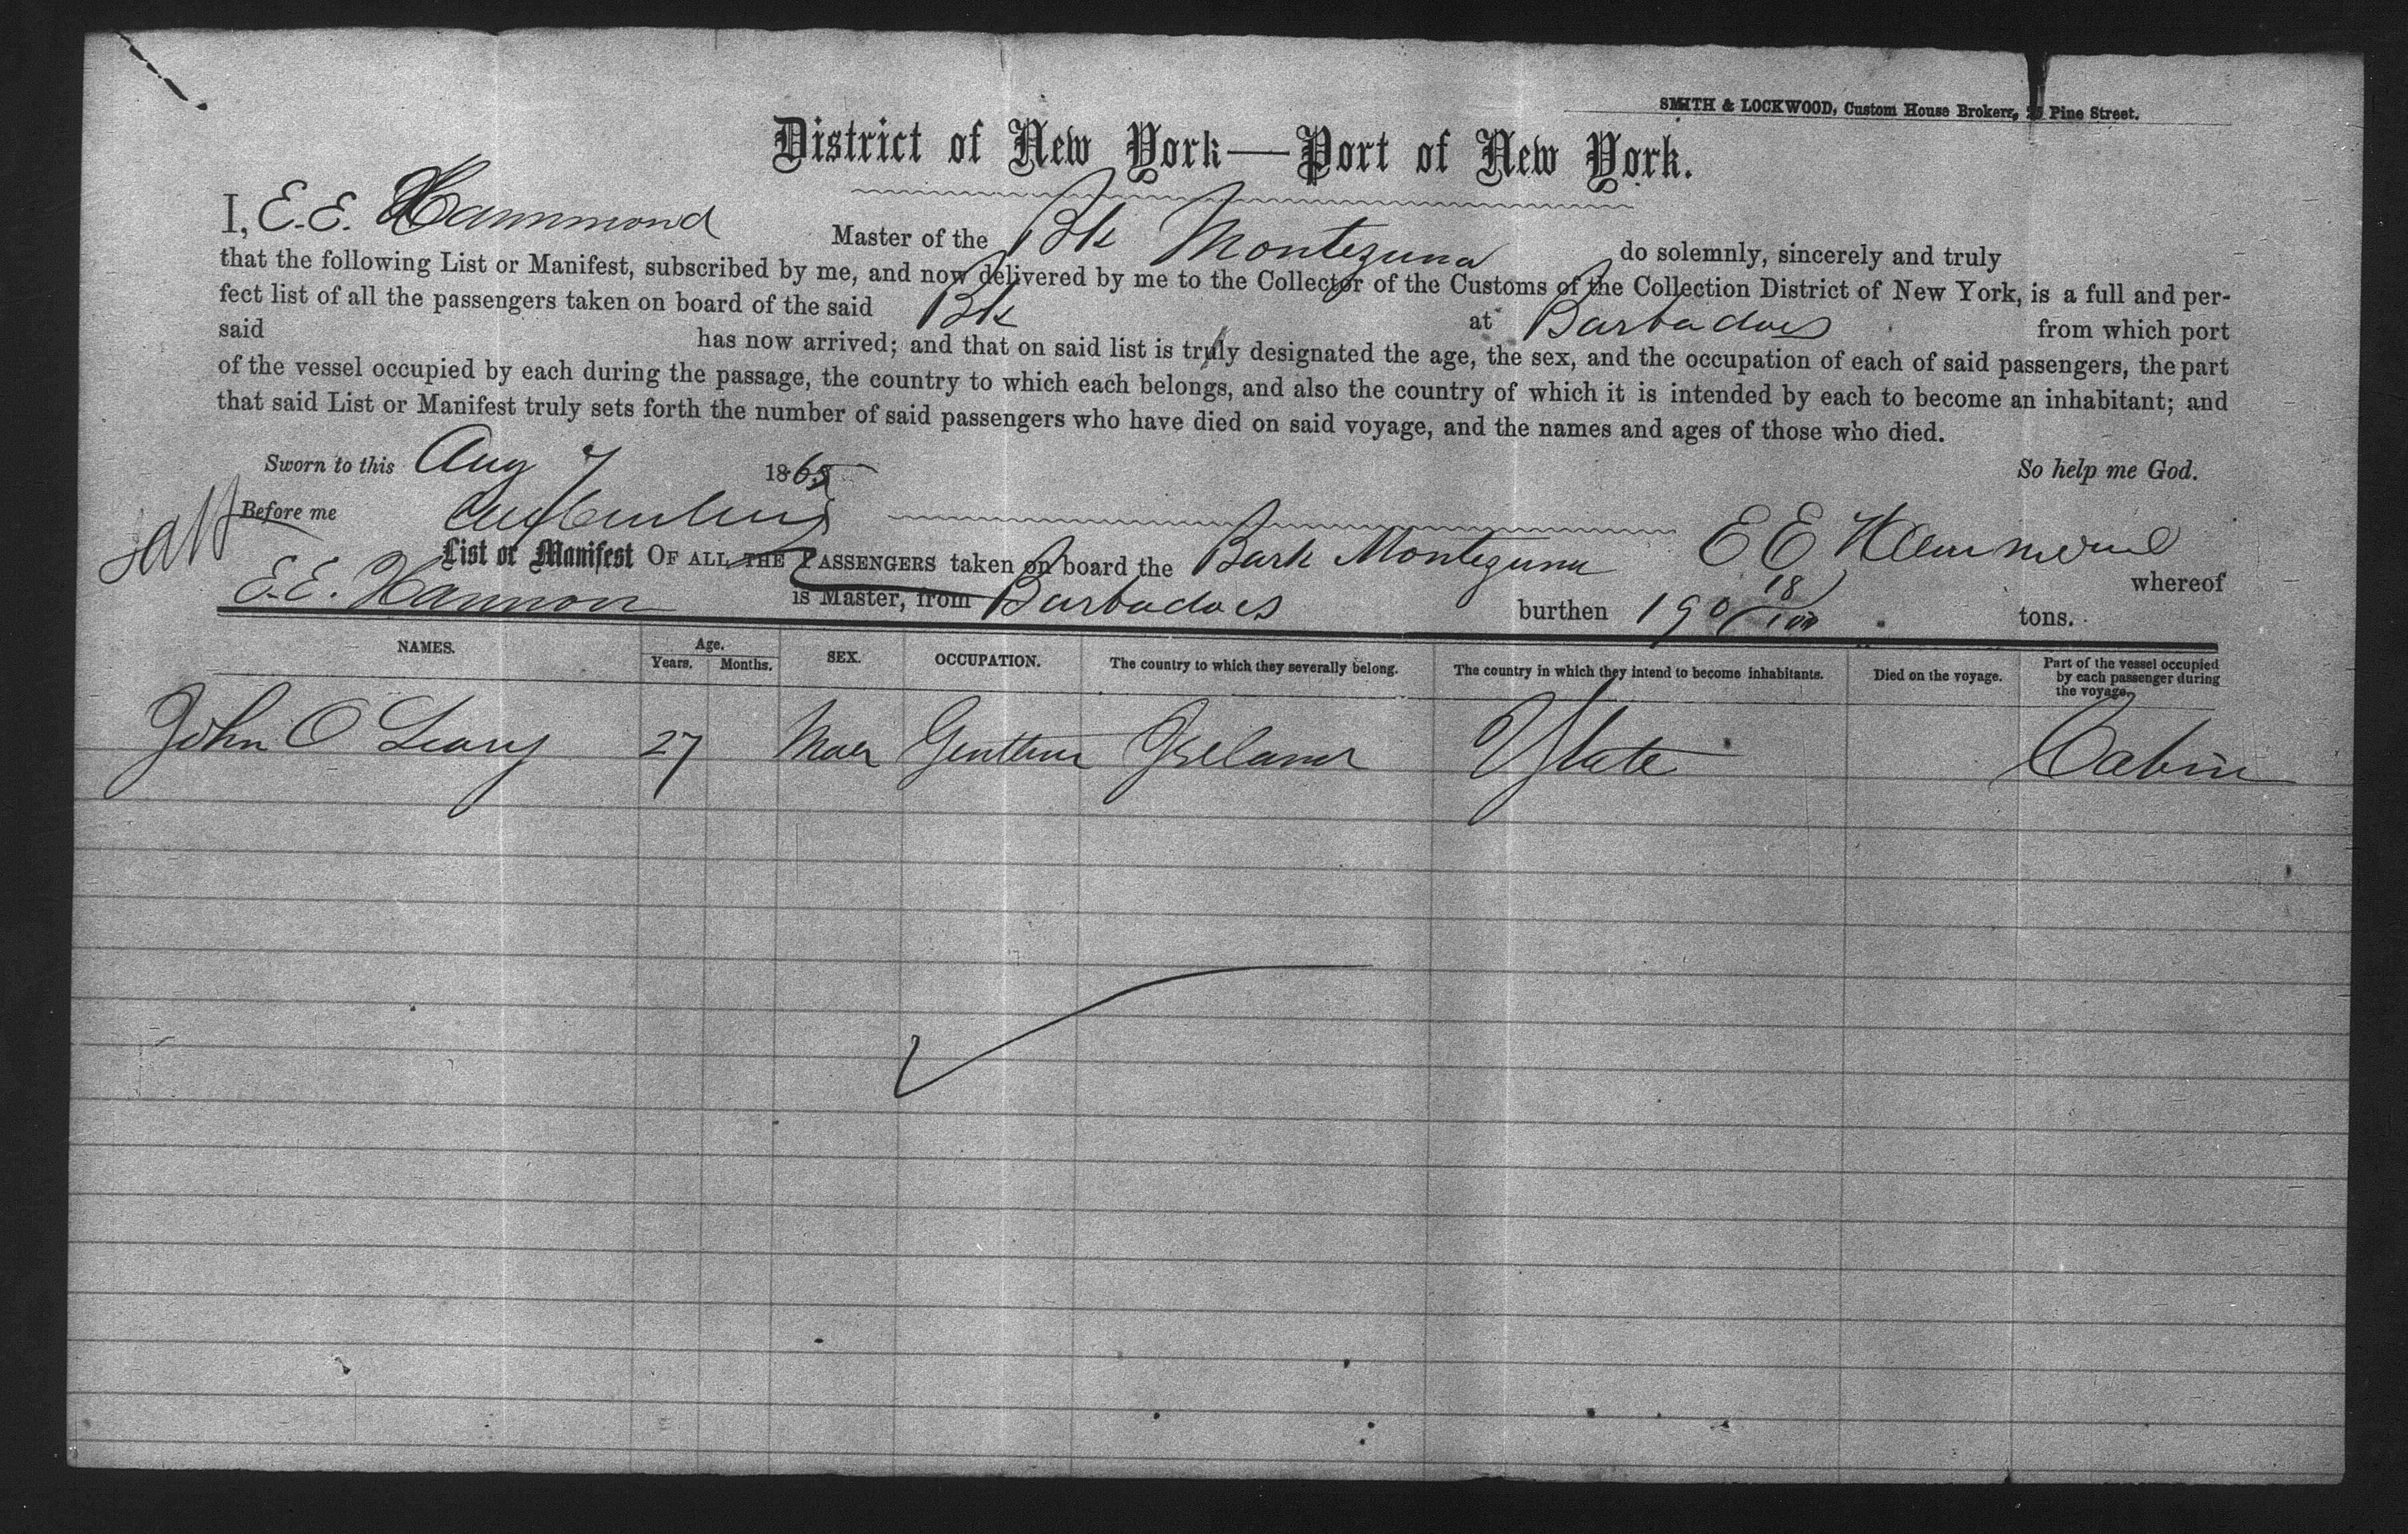 SMITH & LOCKWOOD, Custom House Brokers, Pine Street.
District of New York—Port of New York.
I, E. E. Hammond Master of the Bk Montezuma do solemnly, sincerely and truly
that the following List or Manifest, subscribed by me, and now delivered by me to the Collector of the Customs of the Collection District of New York, is a full and per-
fect list of all the passengers taken on board of the said Bk at Barbadoes from which port
said has now arrived; and that on said list is truly designated the age, the sex, and the occupation of each of said passengers, the part
of the vessel occupied by each during the passage, the country to which each belongs, and also the country of which it is intended by each to become an inhabitant; and
that said List or Manifest truly sets forth the number of said passengers who have died on said voyage, and the names and ages of those who died.
Sworn to this Aug 7 1865 So help me God.
Before me E E Hammond
List or Manifest OF ALL THE PASSENGERS taken on board the Bark Montezuma whereof
E. E. Hammon is Master, from Barbadoes burthen 190 18/100 tons.
NAMES. Age. Years. Months. SEX. OCCUPATION. The country to which they severally belong. The country in which they intend to become inhabitants. Died on the voyage. Part of the vessel occupied by each passenger during the voyage.
John O Leary 27 Gentlem Ireland Cabin